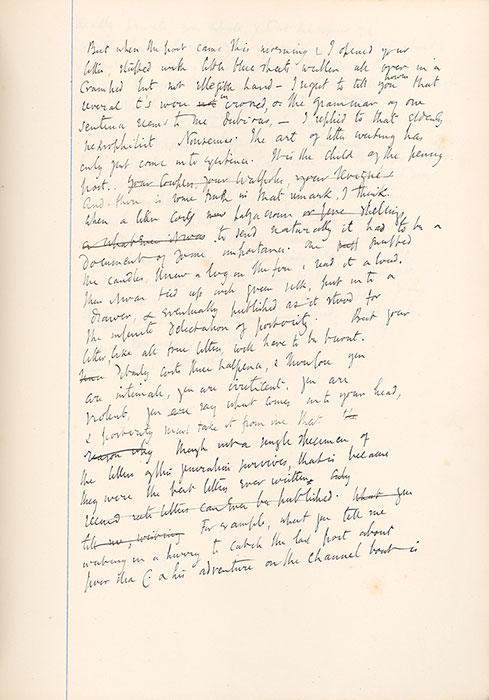 But when the post came this morning & I opened your
letter, stuffed with little blue sheets written all over in a
cramped but not illegible hand – I regret to tell you however that
several t's were uncrossed, & the grammar of one
sentence seems to me dubious, – I replied to that elderly
necrophilist Nonsense. The art of letter writing has
only just come into existence. It is the child of the penny
post.. Your Cowpers, your Walpoles, your Sevignes
And there is some truth in that remark, I think.
When a letter cost half a crown or five shillings
to send naturally it had to be a
document of some importance. One snuffed
the candles, threw a log on the fire & read it aloud.
Then it was tied up with green silk, put into a
drawer, & eventually published as it stood for
the infinite delectation of posterity. But your
letter, like all true letters, will have to be burnt.
It only costs three halfpence, & therefore you
are intimate, you are irreticent. You are
violent, you say what comes into your head,
& posterity must take it from me that
reason why though not a single specimen of
the letters of this generation survives, that is because
they were the best letters ever written. Only
second rate letters can ever be published. What you
tell me, writing For example, what you tell me
writing in a hurry to catch the last post about
poor dear C & his adventure on the Channel boat is